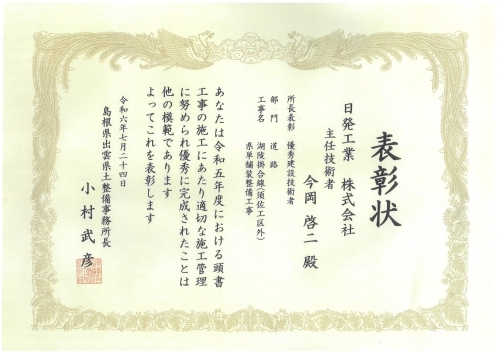 表彰状
日発工業　株式会社
主任技術者
今岡　啓二　殿
所長表彰　優秀建設技術者
部門　道路
工事名　湖陵掛合線（須佐工区外）
県単舗装整備工事
あなたは令和五年度における頭書
工事の施工にあたり適切な施工管理
に努められ優秀に完成されたことは
他の模範であります
よってこれを表彰します
令和六年七月二十四日
島根県出雲県土整備事務所長
小村　武彦